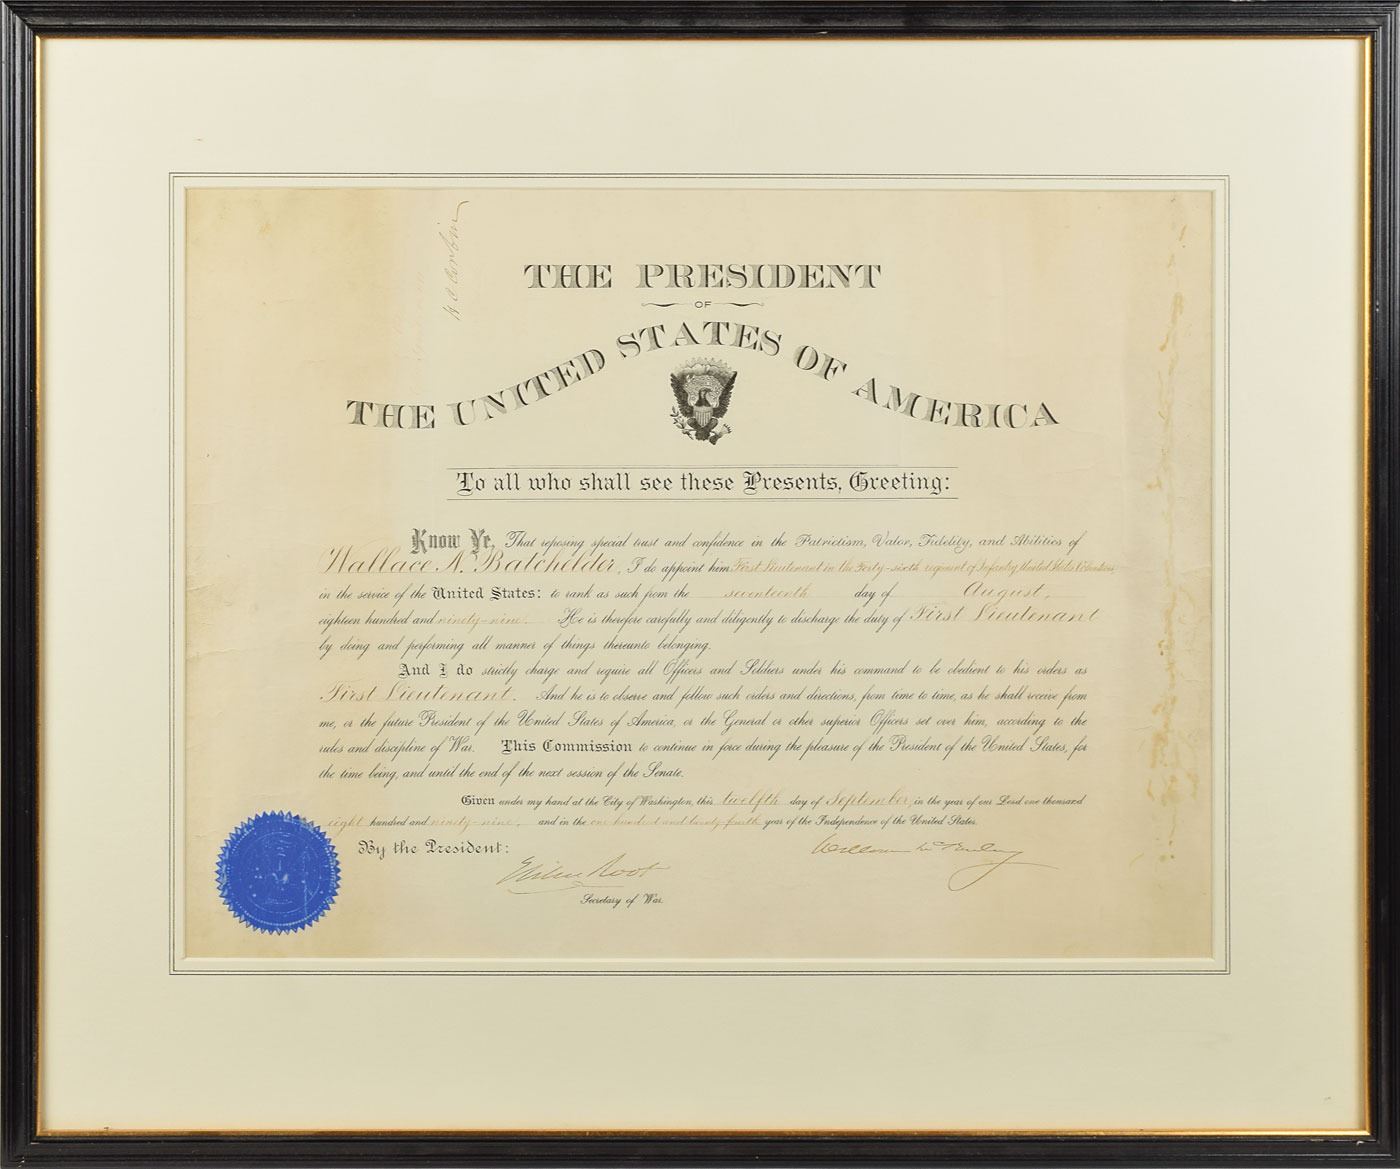 H C Corbin
THE PRESIDENT
OF
THE UNITED STATES OF AMERICA
To all who shall see these Presents, Greeting:
Know Ye, That reposing special trust and confidence in the Patriotism, Valor, Fidelity, and Abilities of
Wallace N. Batchelder, I do appoint him First Lieutenant in the Forty-sixth regiment of Infantry United States Volunteers,
in the service of the United States: to rank as such from the seventeenth day of August,
eighteen hundred and ninety-nine. He is therefore carefully and diligently to discharge the duty of First Lieutenant
by doing and performing all manner of things thereunto belonging.
And I do strictly charge and require all Officers and Soldiers under his command to be obedient to his orders as
First Lieutenant. And he is to observe and follow such orders and directions, from time to time, as he shall receive from
me, or the future President of the United States of America, or the General or other superior Officers set over him, according to the
rules and discipline of War. This Commission to continue in force during the pleasure of the President of the United States, for
the time being, and until the end of the next session of the Senate.
Given under my hand at the City of Washington, this twelfth day of September, in the year of our Lord one thousand
eight hundred and ninety-nine, and in the one hundred and twenty-fourth year of the Independence of the United States.
By the President:
William McKinley
Elihu Root
Secretary of War.